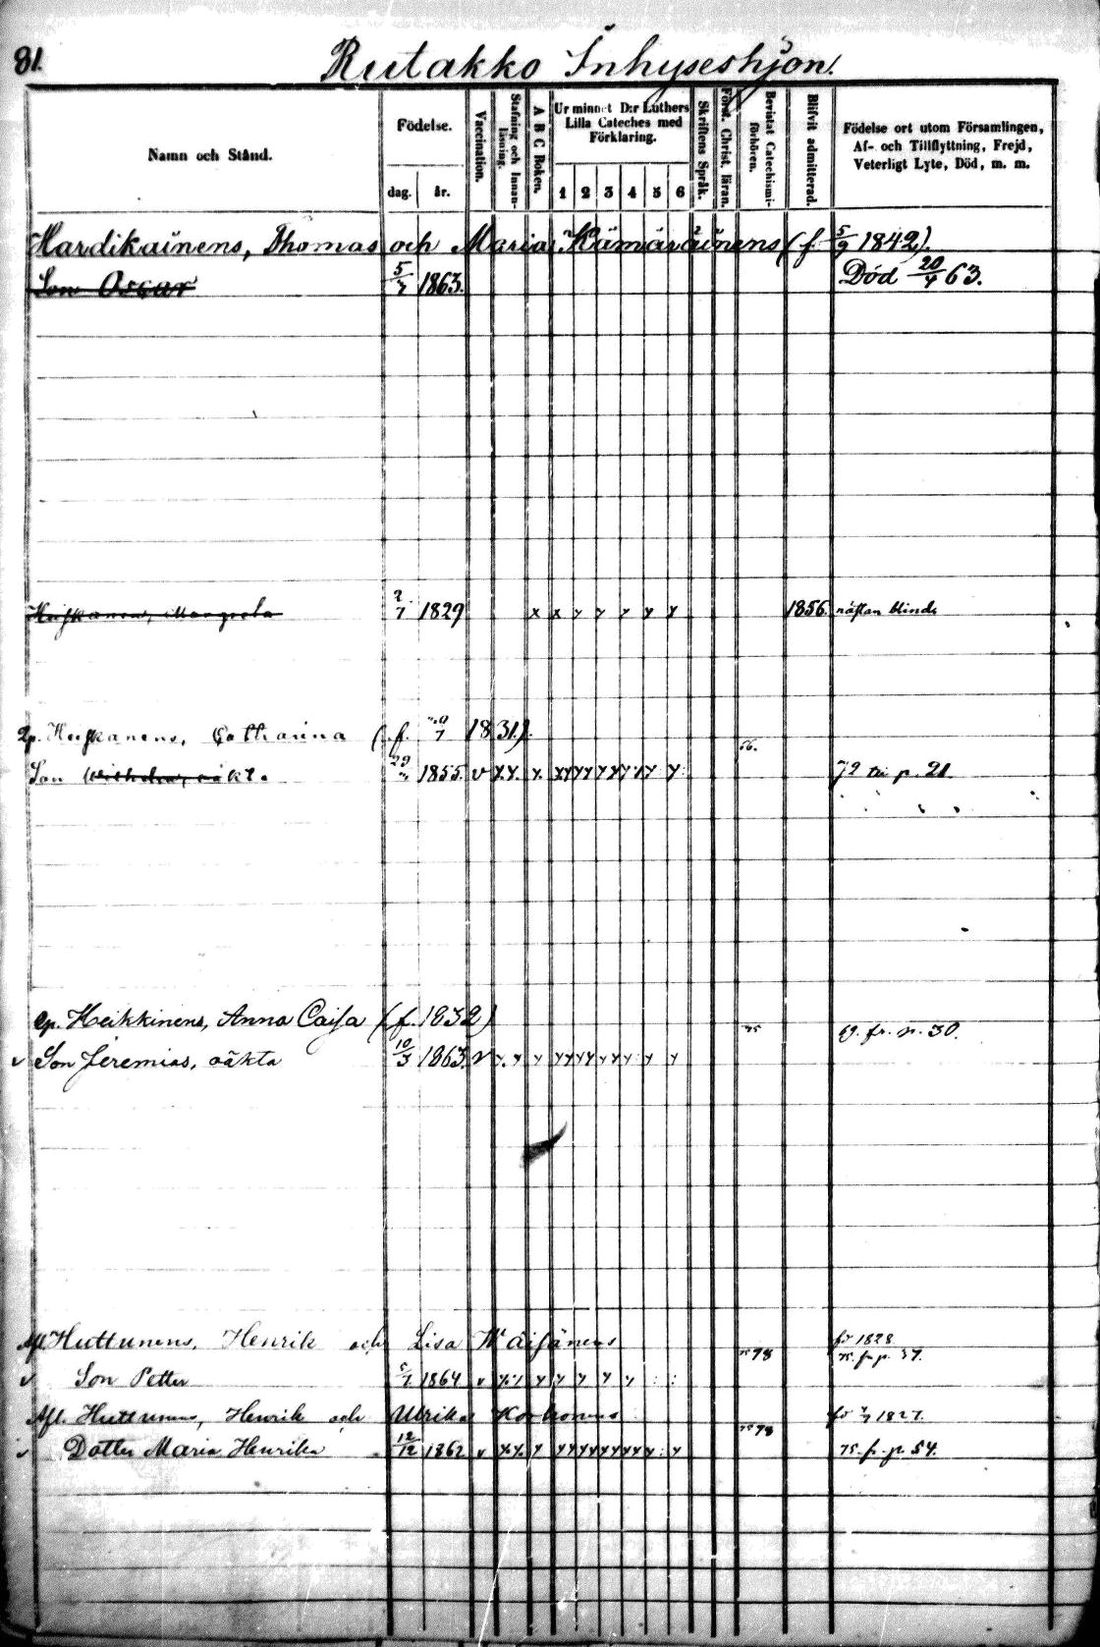 81.
Rutakko Inhyseshjon.
Namn och Stånd.
Födelse.
dag.
år.
Vaccination.
Stafning och Innanläsning.
A B C Boken.
Ur minnet D:r Luthers Lilla Cateches med Förklaring.
1 2 3 4 5 6
Skriftens Språk.
Först. Christ. läran.
Bevistat Catechismiförhören.
Blifvit admitterad.
Födelse ort utom Församlingen,
Af- och Tillflyttning, Frejd,
Veterligt Lyte, Död, m. m.
Hardikainens, Thomas och Maria Kämäräinens (f. 5/9 1842).
Son Oscar 5/4 1863. Död 20/4 63.
Margreta 2/1 1829 x x y y y y y 1856. nästan blind
Heiskanens, Catharina (f. 1831).
56.
Son 1855. v y y y 72 till p. 21.
op. Heikkinens, Anna Caisa (f. 1832)
75 69. fr. p. 30.
v Son Jeremias, oäkta 10/3 1863. v y y y
Afl. Huttunens, Henrik och Lisa Wäisänens
för 1828
75 78 75. fr. p. 37.
v Son Petter 1864 v y y y y y y
Afl. Huttunens, Henrik och Ulrika Korhonens
1827.
75 78
v Dotter Maria Henrika 12/12 1862 v y y y 75. fr. p. 54.